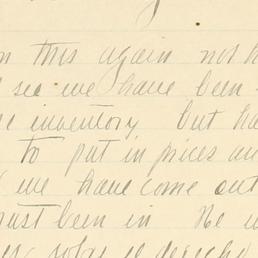 this again not
see we have been
inventory. but ha
to put in prices an
we have come out
just been in He w